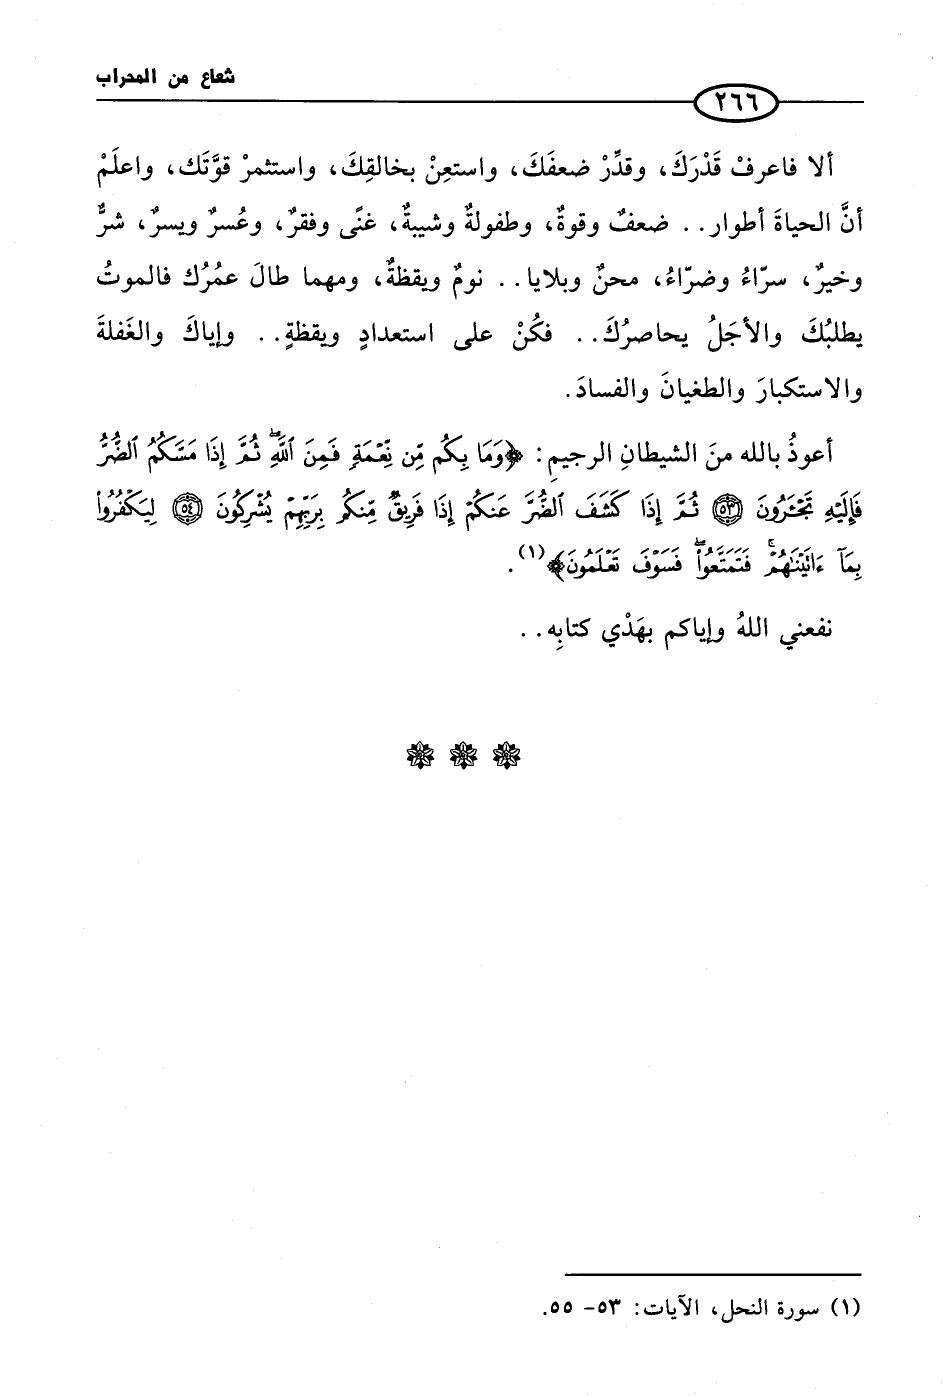 شعاع من المحراب
٢٦٦
ألا فاعرفْ قَدْرَكَ، وقدِّرْ ضعفَكَ، واستعِنْ بخالقِكَ، واستثمرْ قوَّتَك، واعلَمْ
أنَّ الحياةَ أطوار.. ضعفٌ وقوةٌ، وطفولةٌ وشيبةٌ، غنًى وفقرٌ، وعُسرٌ ويسرٌ، شرٌّ
وخيرٌ، سرّاءُ وضرّاءُ، محنٌ وبلايا.. نومٌ ويقظةٌ، ومهما طالَ عمُرُك فالموتُ
يطلبُكَ والأجَلُ يحاصرُكَ.. فكُنْ على استعدادٍ ويقظةٍ.. وإياكَ والغَفلةَ
والاستكبارَ والطغيانَ والفسادَ.
أعوذُ بالله منَ الشيطانِ الرجيمِ: ﴿وَمَا بِكُم مِّن نِّعْمَةٍ فَمِنَ ٱللَّهِ ۖ ثُمَّ إِذَا مَسَّكُمُ ٱلضُّرُّ
فَإِلَيْهِ تَجْـَٔرُونَ ٥٣ ثُمَّ إِذَا كَشَفَ ٱلضُّرَّ عَنكُمْ إِذَا فَرِيقٌ مِّنكُم بِرَبِّهِمْ يُشْرِكُونَ ٥٤ لِيَكْفُرُوا۟
بِمَآ ءَاتَيْنَـٰهُمْ ۚ فَتَمَتَّعُوا۟ ۖ فَسَوْفَ تَعْلَمُونَ﴾(١).
نفعني اللهُ وإياكم بهَدْي كتابِه..
(١) سورة النحل، الآيات: ٥٣- ٥٥.